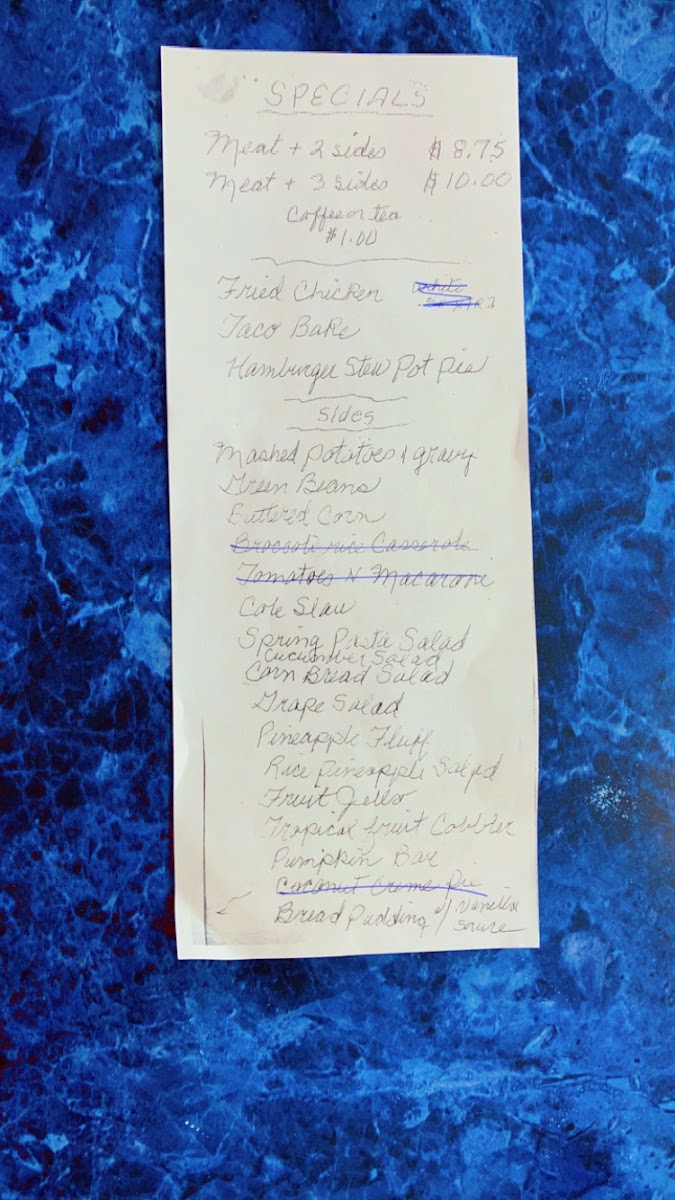 SPECIALS
Meat + 2 sides $8.75
Meat + 3 sides $10.00
Coffee or tea
$1.00
Fried Chicken white
Taco Bake
Hamburger Stew Pot Pie
Sides
Mashed potatoes & gravy
Green Beans
Buttered Corn
Broccoli rice Casserole
Tomatoes N Macaroni
Cole Slaw
Spring Pasta Salad
Cucumber Salad
Corn Bread Salad
Grape Salad
Pineapple Fluff
Rice pineapple Salad
Fruit Jello
Tropical fruit Cobbler
Pumpkin Bar
Coconut Creme Pie
Bread Pudding w/ Vanilla
sauce